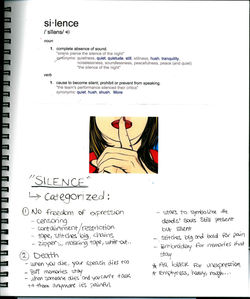 si·lence
/ˈsīləns/
noun
1. complete absence of sound.
"sirens pierce the silence of the night"
synonyms: quietness, quiet, quietude, still, stillness, hush, tranquility,
noiselessness, soundlessness, peacefulness, peace (and quiet)
"the silence of the night"
verb
1. cause to become silent; prohibit or prevent from speaking.
"the team's performance silenced their critics"
synonyms: quiet, hush, shush; More
"SILENCE"
↳ Categorized:
① No freedom of expression
- censoring
- containment/restriction
- tape, stitches big, chains
- zippers, masking tape, white out..
② Death
- when you die, your speech dies too
- BUT memories stay
- when someone dies and you can't talk
to them anymore its painful.
- used to symbolize the
death/ souls still present
but silent
- stitches big and bold for pain
- Embroidery for memories that
stay
- All black for
+ Emptyness, heavy, rough...